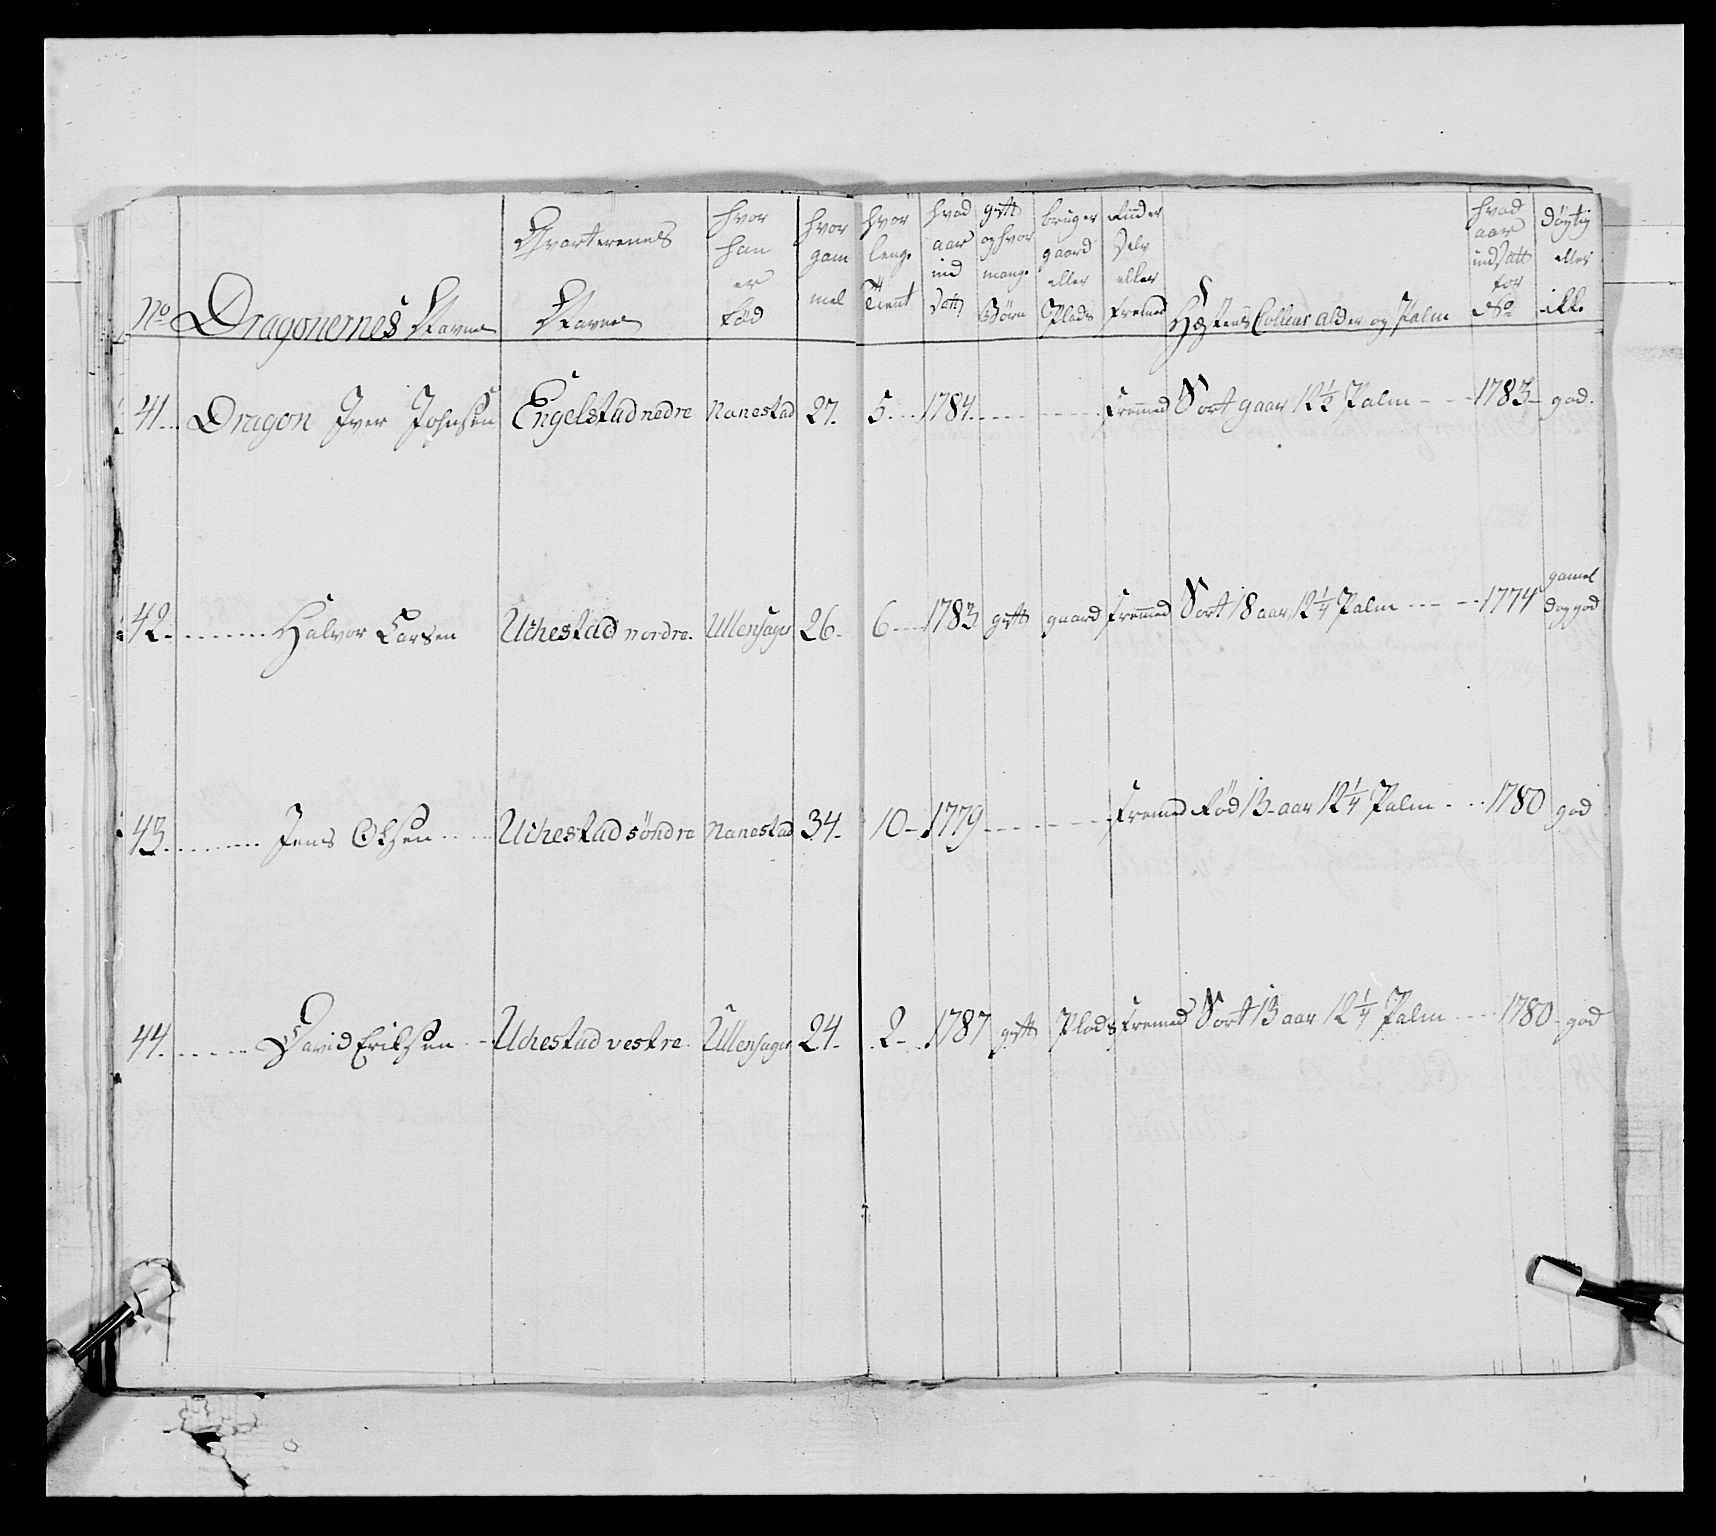 No Dragonernes Navne | Qvarterenes Navne | hvor han er fød | hvor gam mel | hvor lenge tient | hvad aar ind satt | gift og hvor mange Børn | bruger gaard eller Plads | Ruder Selv eller fremed | Hæstens Colleur alder og Palm | hvad aar indsatt for No | døgtig eller ikke
41 Dragon Iver Johnsen | Engelstad nedre | Nanestad | 27 | 5 | 1784 | fremmed | Sort 9 aar 12 1/2 Palm | 1783 | god
42 Halvor Larsen | Uchestad nordre | Ullensager | 26 | 6 | 1783 | gift | gaard | fremmed | Sort 18 aar 12 1/4 Palm | 1774 | gamel dog god
43 Jens Olsen | Uchestad søndre | Nanestad | 34 | 10 | 1779 | fremed | Rød 13 aar 12 1/4 Palm | 1780 | god
44 David Eriksen | Uchestad vestre | Ullensager | 24 | 2 | 1787 | gift | Plads | fremed | Sort 13 aar 12 1/4 Palm | 1780 | god